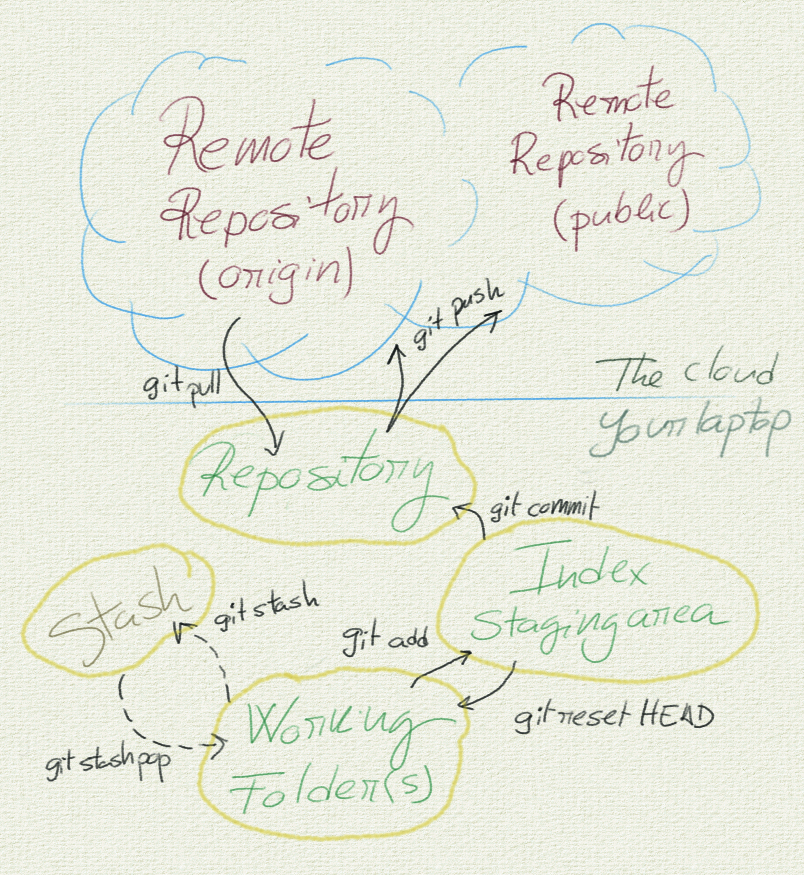 Remote
Repository
(origin)
Remote
Repository
(public)
git push
git pull
The cloud
Your laptop
Repository
git commit
Index
Staging area
Stash
git stash
git add
git reset HEAD
git stash pop
Working
Folder(s)